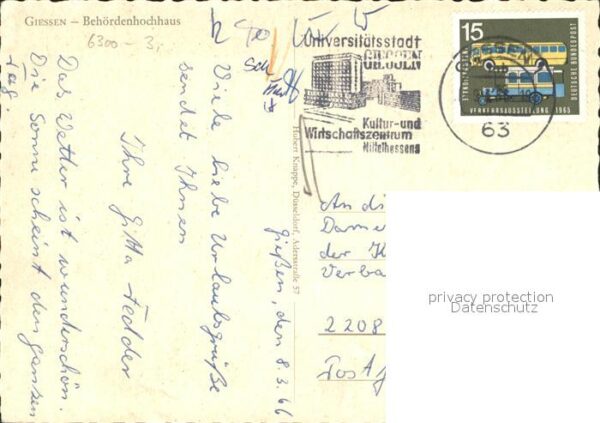 GIESSEN – Behördenhochhaus
6300 – 3,-
Viele liebe Urlaubsgrüße
sendet Ihnen
Ihre Gitta Fedder
Das Wetter ist wunderschön.
Die Sonne scheint den ganzen
Tag.
Hubert Knappe, Düsseldorf, Adersstraße 57
Universitätsstadt
GIESSEN
Kultur-und
Wirtschaftszentrum
Mittelhessens
GIESSEN
63
15
DEUTSCHE BUNDESPOST
VERKEHRSAUSSTELLUNG 1965
Gießen, den 8.3.66
An di
Damen
der K
Verba
2208
Post
privacy protection
Datenschutz